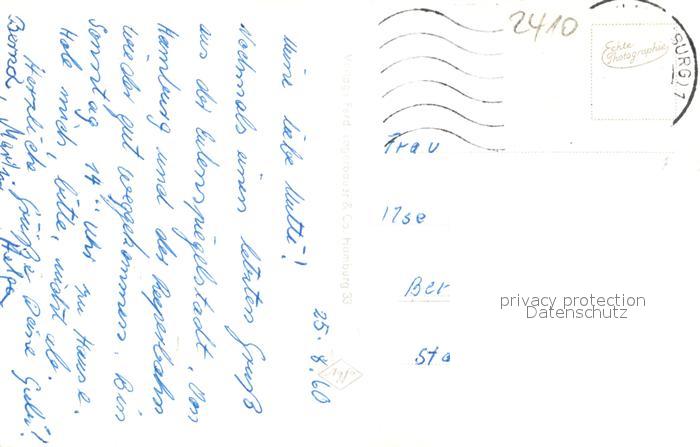 25.8.60
Meine liebe Mutti!
Nochmals einen letzten Gruß
aus der Eulenspiegelstadt. Von
Hamburg und der Reeperbahn
wieder gut weggekommen. Bin
Sonntag 14 Uhr zu Hause.
Hole mich, bitte, nicht ab.
Herzliche Grüße Deine Gabi!
Bernd,
Verlag Ferd. & Co. Hamburg 33
2410
Echte
Photographie
BURG) 7
Frau
Ilse
Ber
Sta
privacy protection
Datenschutz